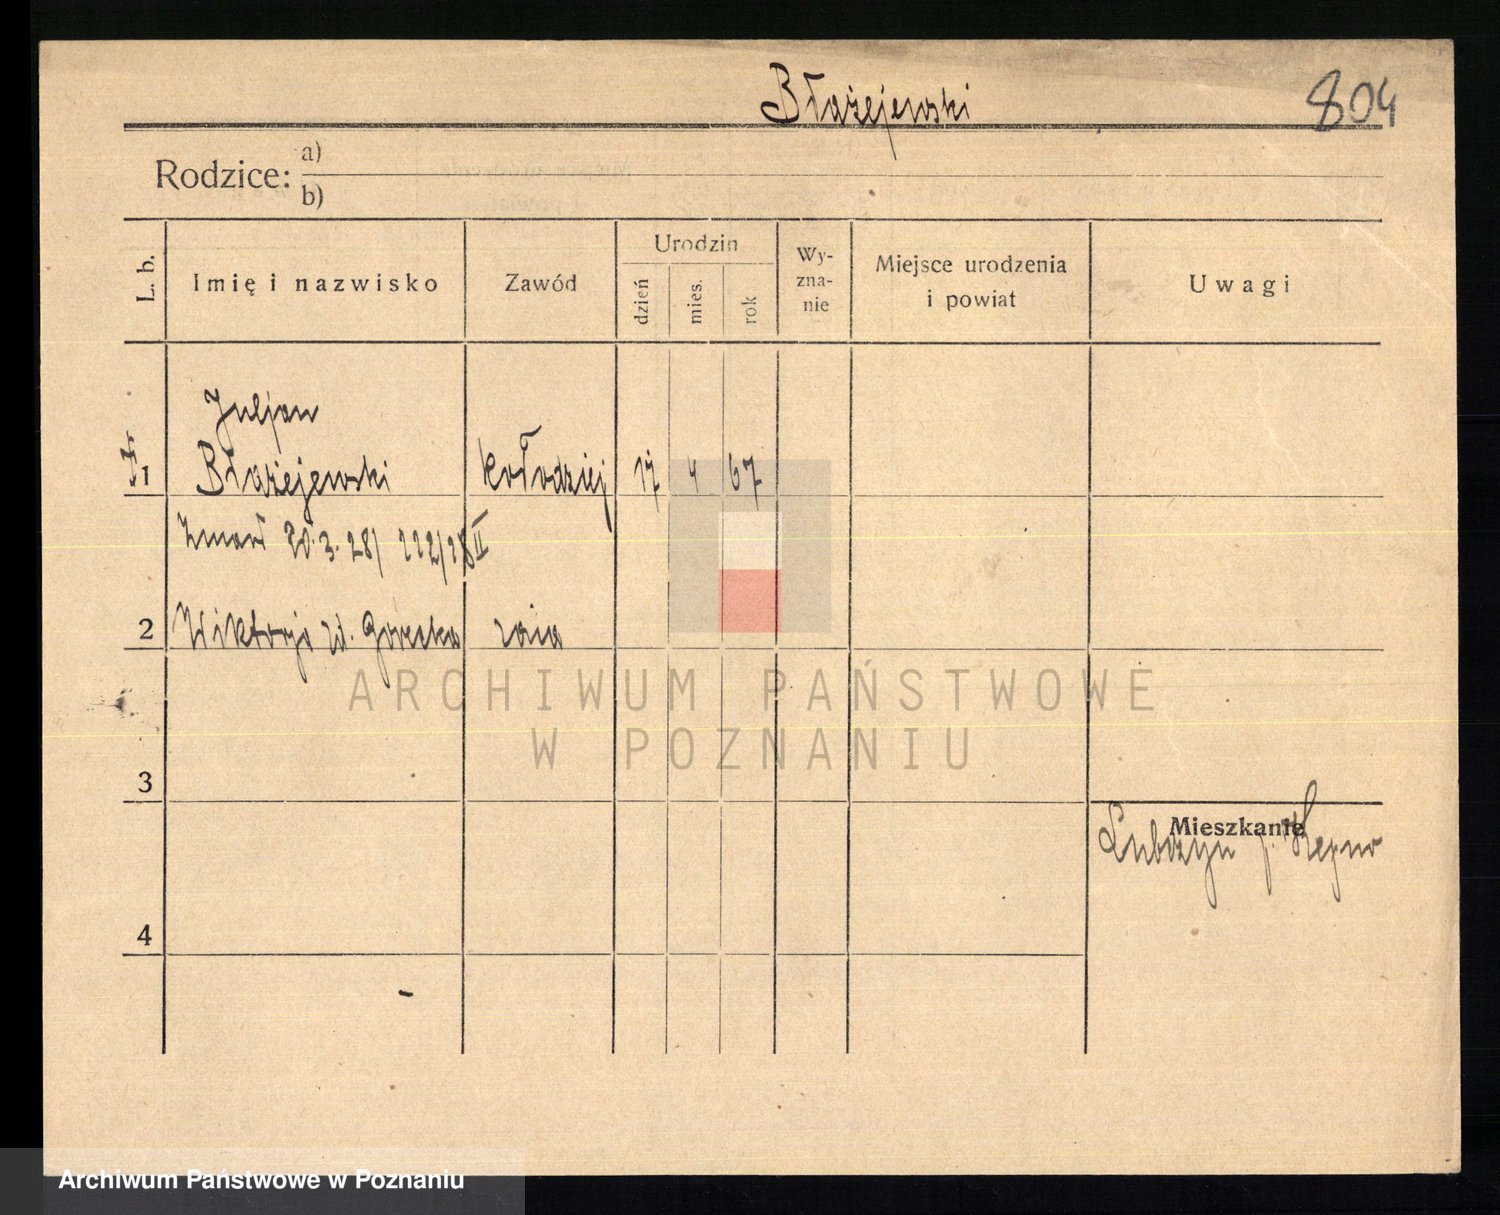 Błażejewski
804
Rodzice:
a)
b)
L. b.
Imię i nazwisko
Zawód
Urodzin
dzień
mies.
rok
Wy-
zna-
nie
Miejsce urodzenia
i powiat
Uwagi
Juljan
1 Błażejewski kołodziej 17 4 67
Zmarł 20.3.28/ 222/28 II
2 Wiktorja zd. Gorecka
3
Mieszkanie
4
ARCHIWUM PAŃSTWOWE
W POZNANIU
Archiwum Państwowe w Poznaniu